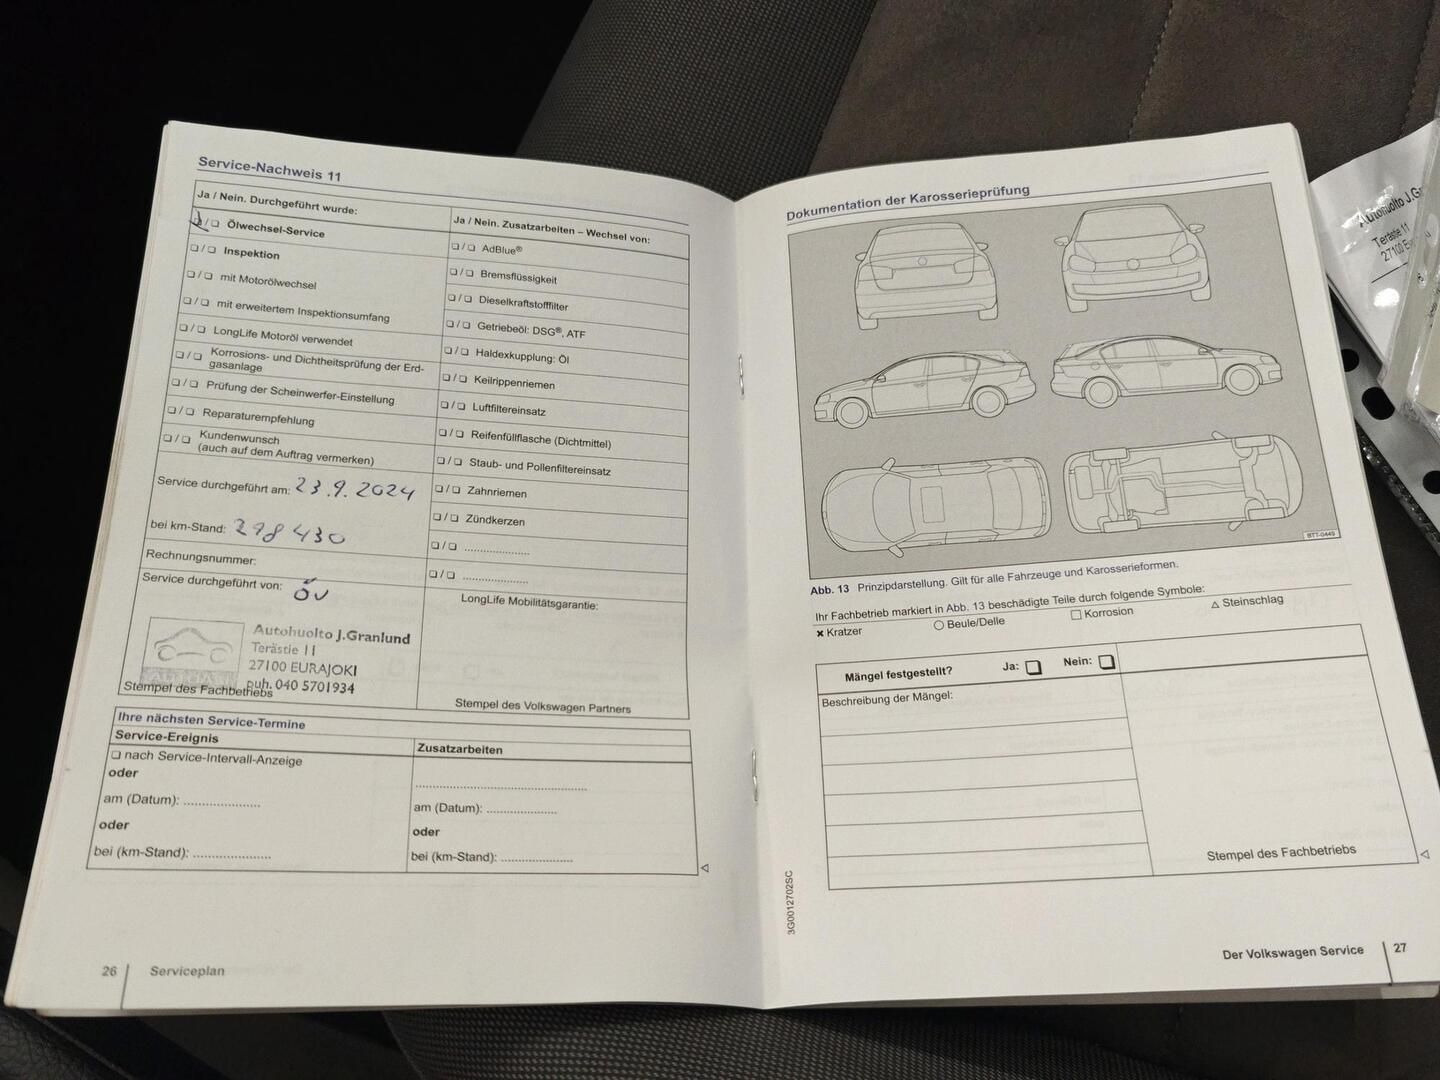 Service-Nachweis 11
Ja / Nein. Durchgeführt wurde:
❏ / ❏ Ölwechsel-Service
❏ / ❏ Inspektion
❏ / ❏ mit Motorölwechsel
❏ / ❏ mit erweitertem Inspektionsumfang
❏ / ❏ LongLife Motoröl verwendet
❏ / ❏ Korrosions- und Dichtheitsprüfung der Erd-
gasanlage
❏ / ❏ Prüfung der Scheinwerfer-Einstellung
❏ / ❏ Reparaturempfehlung
❏ / ❏ Kundenwunsch
(auch auf dem Auftrag vermerken)
Service durchgeführt am: 23.9.2024
bei km-Stand: 298 430
Rechnungsnummer:
Service durchgeführt von:
Autohuolto J.Granlund
Terästie 11
27100 EURAJOKI
puh. 040 5701934
Stempel des Fachbetriebs
Ja / Nein. Zusatzarbeiten – Wechsel von:
❏ / ❏ AdBlue®
❏ / ❏ Bremsflüssigkeit
❏ / ❏ Dieselkraftstofffilter
❏ / ❏ Getriebeöl: DSG®, ATF
❏ / ❏ Haldexkupplung: Öl
❏ / ❏ Keilrippenriemen
❏ / ❏ Luftfiltereinsatz
❏ / ❏ Reifenfüllflasche (Dichtmittel)
❏ / ❏ Staub- und Pollenfiltereinsatz
❏ / ❏ Zahnriemen
❏ / ❏ Zündkerzen
❏ / ❏ ....................
❏ / ❏ ....................
LongLife Mobilitätsgarantie:
Stempel des Volkswagen Partners
Ihre nächsten Service-Termine
Service-Ereignis
❏ nach Service-Intervall-Anzeige
oder
am (Datum): ....................
oder
bei (km-Stand): ....................
Zusatzarbeiten
am (Datum): ....................
oder
bei (km-Stand): ....................
26 Serviceplan
Dokumentation der Karosserieprüfung
BTT-0449
Abb. 13 Prinzipdarstellung. Gilt für alle Fahrzeuge und Karosserieformen.
Ihr Fachbetrieb markiert in Abb. 13 beschädigte Teile durch folgende Symbole:
✖ Kratzer ○ Beule/Delle □ Korrosion △ Steinschlag
Mängel festgestellt? Ja: ❏ Nein: ❏
Beschreibung der Mängel:
Stempel des Fachbetriebs
3G0012702SC
Der Volkswagen Service 27
Autohuolto J.Gr
Terästie 11
27100